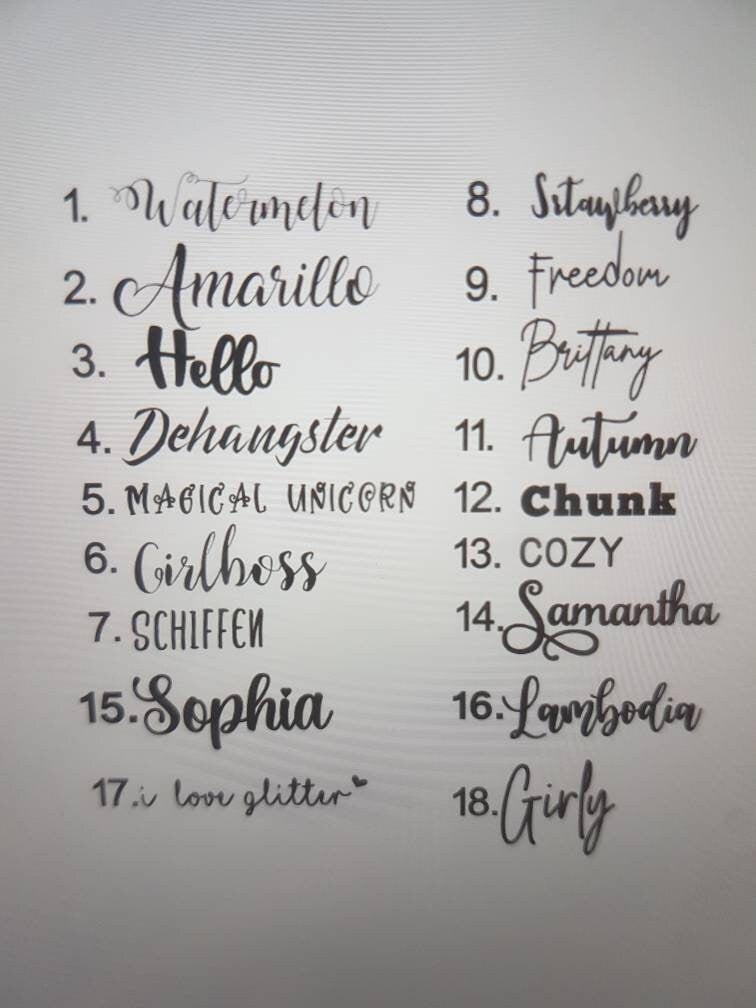 1. Watermelon
2. Amarillo
3. Hello
4. Dehangster
5. MAGICAL UNICORN
6. Girlboss
7. SCHIFFEN
8. Sstaylberry
9. Freedom
10. Brittany
11. Autumn
12. Chunk
13. COZY
14. Samantha
15. Sophia
16. Lambodia
17. i love glitter
18. Girly